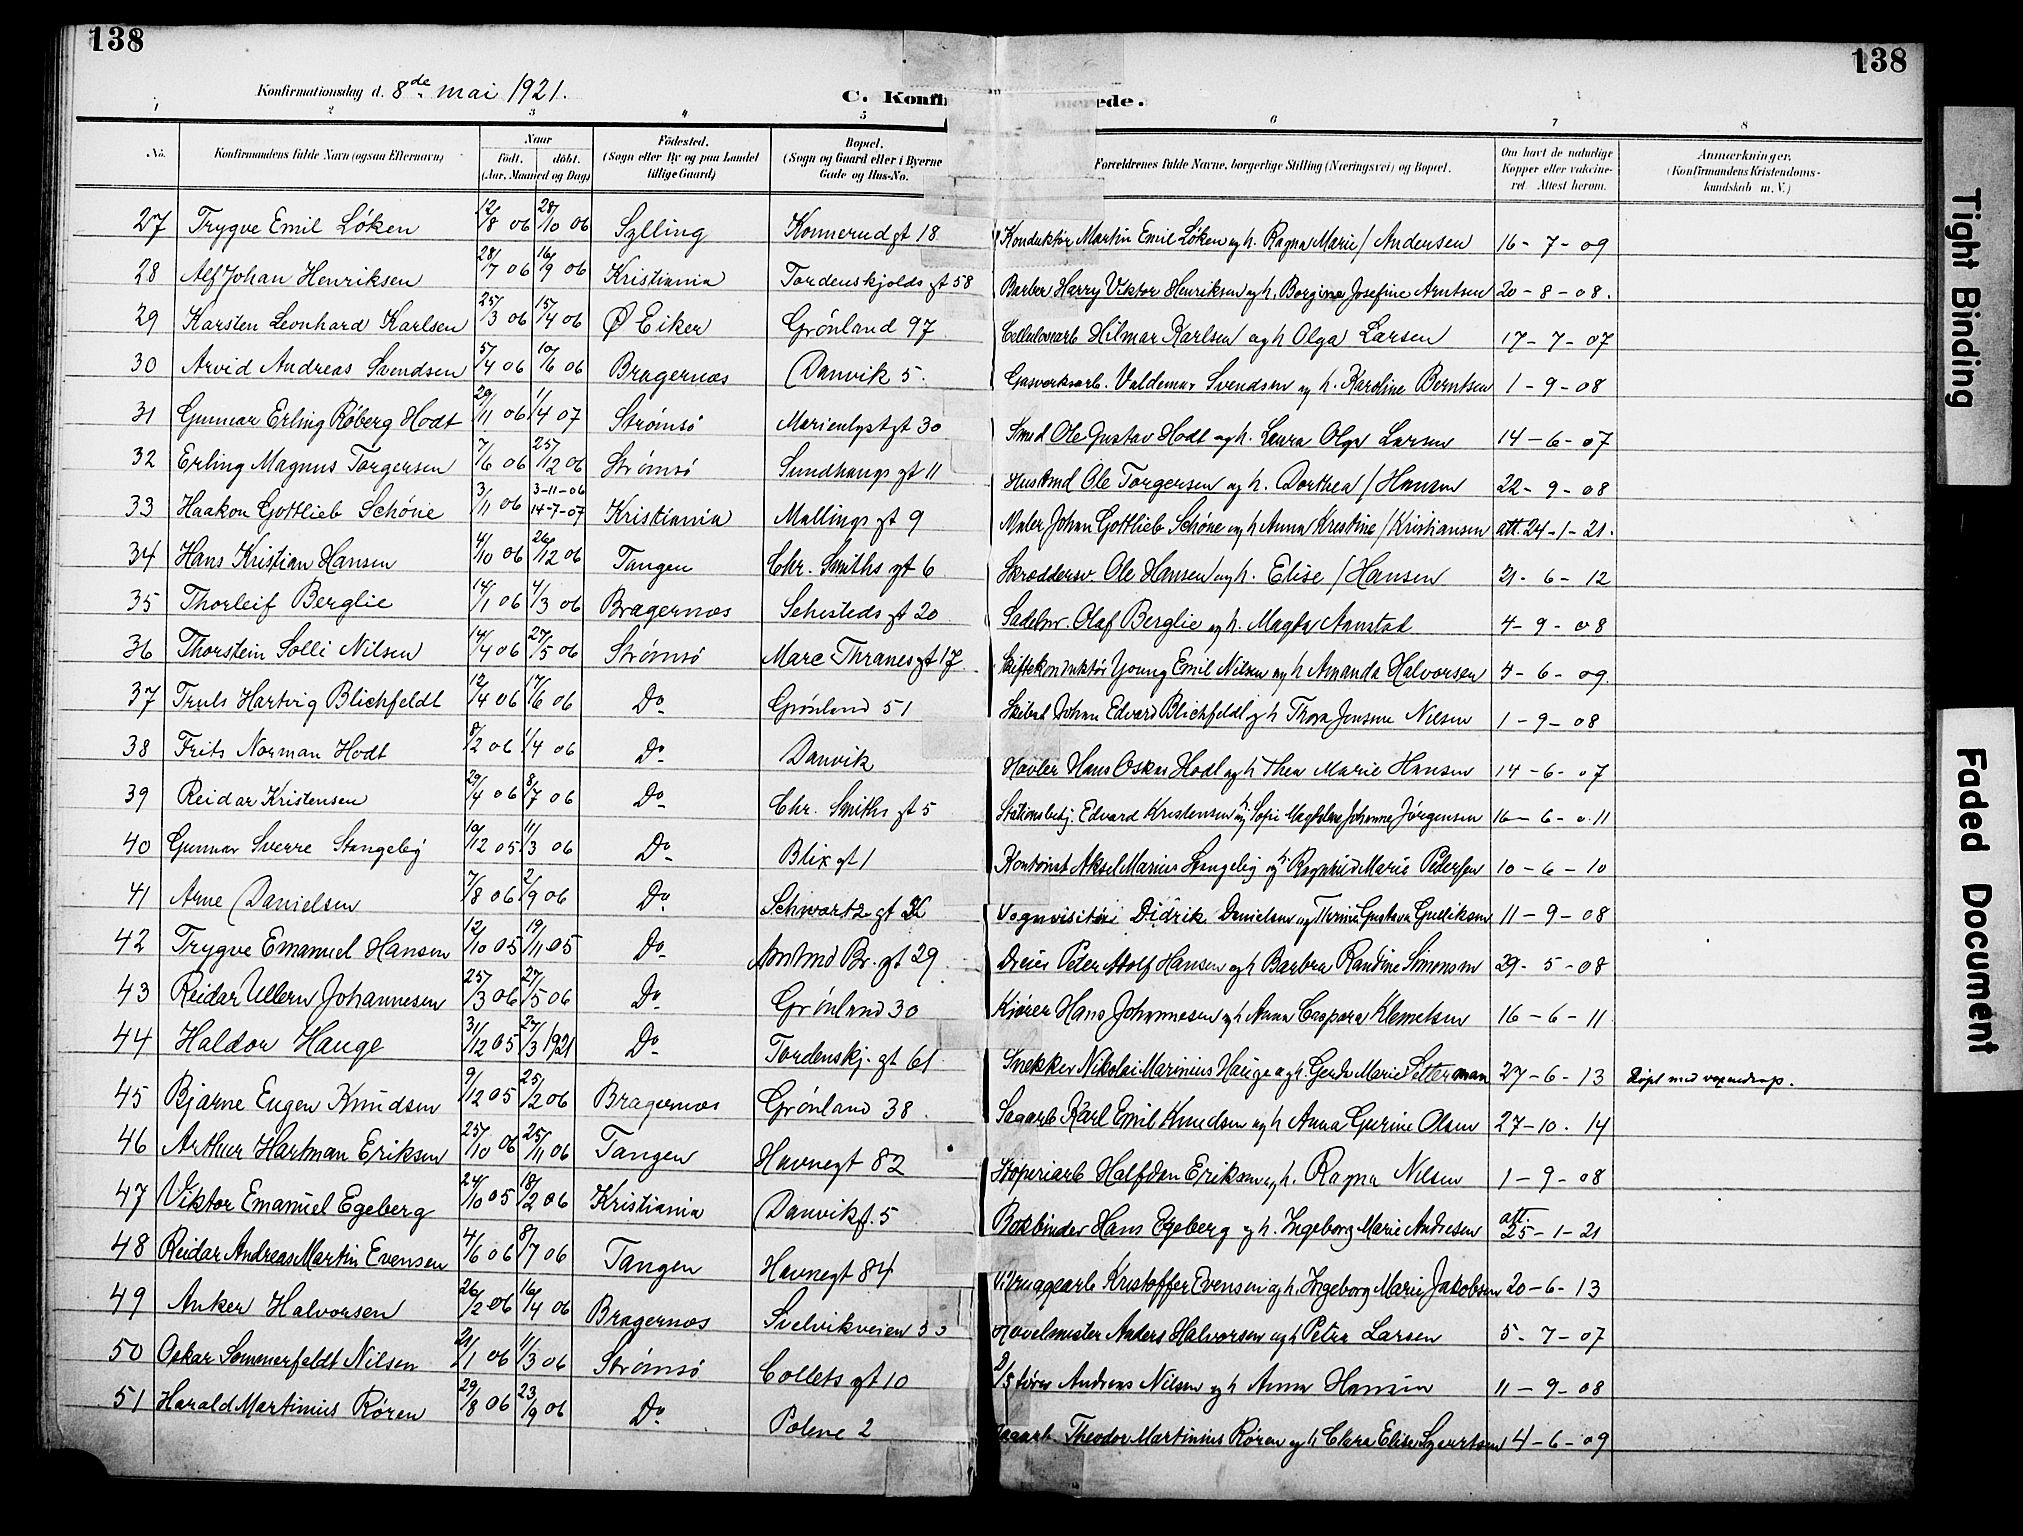 138
138
Konfirmationsdag d. 8de mai 1921.
C. Konfir
ede.
1 2 3 4 5 6 7 8
No.
Konfirmandens fulde Navn (ogsaa Efternavn)
Naar
født. døbt.
(Aar, Maaned og Dag)
Fødested.
(Sogn eller By og paa Landet
tillige Gaard)
Bopæl.
(Sogn og Gaard eller i Byerne
Gade og Hus-No.
Forældrenes fulde Navne, borgerlige Stilling (Næringsvei) og Bopæl.
Om havt de naturlige
Kopper eller vakcine-
ret. Attest herom.
Anmærkninger.
(Konfirmandens Kristendoms-
kundskab m. V.)
27 Trygve Emil Løken 12/8 06 28/10 06 Sylling Konnerudgt 18 Konduktør Martin Emil Løken og h. Ragna Marie / Andersen 16 - 7 - 09
28 Alf Johan Henriksen 28/7 06 16/9 06 Kristiania Tordenskjolds gt 58 Barber Harry Viktor Henriksen og h. Borgine Josefine Arntsen 20 - 8 - 08.
29 Karsten Leonhard Karlsen 25/3 06 15/4 06 Ø Eiker Grønland 97 Hilmar Karlsen og h Olga Larsen 17 - 7 - 07
30 Arvid Andreas Svendsen 5/4 06 10/6 06 Bragernæs Danvik 5. Gasverksarb. Valdemar Svendsen og h. Karoline Berntsen 1 - 9 - 08
31 Gunnar Erling Røberg Hodt 29/11 06 1/4 07 Strømsø Marienlystgt 30 Smed Ole Gustav Hodt og h. Laura Olga Larsen 14 - 6 - 07
32 Erling Magnus Torgersen 7/6 06 25/12 06 Strømsø Sundhaugs gt 11 Ole Torgersen og h. Dorthea / Hansen 22 - 9 - 08
33 Haakon Gottlieb Schöne 3/11 06 3-11-06 14-7-07 Kristiania Mallings gt 9 Maler Johan Gottlieb Schöne og h Anna Kristine / Kristiansen att. 24 - 1 - 21.
34 Hans Kristian Hansen 4/10 06 26/12 06 Tangen Chr. Smiths gt 6 Skræddersv. Ole Hansen og h. Elise / Hansen 21 - 6 - 12
35 Thorleif Berglie 14/1 06 4/3 06 Bragernæs Schesteds gt 20 Olaf Berglie og h. Magda Aamstad 4 - 9 - 08
36 Thorstein Solli Nilsen 14/4 06 27/5 06 Strømsø Marc Thranes gt 17 Skiftekonduktør Young Emil Nilsen og h Amanda Halvorsen 4 - 6 - 09.
37 Truls Hartvig Blichfeldt 12/4 06 17/6 06 Do Grønland 51 Johan Edvard Blichfeldt og h Thora Jensine Nilsen 1 - 9 - 08
38 Frits Norman Hodt 8/2 06 1/4 06 Do Danvik Høvler Hans Oskar Hodt og h Thea Marie Hansen 14 - 6 - 07
39 Reidar Kristensen 29/4 06 8/7 06 Do Chr. Smiths gt 5 Stationsbetj. Edvard Kristensen og h. Sofie Magdalene Johanne Jørgensen 16 - 6 - 011
40 Gunnar Sverre Stangeby 10/12 05 11/3 06 Do Blix gt 1 Kontorist Aksel Marius Stangeby og h. Ragnhild Marie Pedersen 10 - 6 - 10
41 Arne Danielsen 7/8 06 2/9 06 Do Schwartz gt Vognvisitør Didrik Danielsen og Gustava Gulliksen 11 - 9 - 08
42 Trygve Emanuel Hansen 12/10 05 19/11 05 Do Amtmd Br. gt 29 Dreier Peter Adolf Hansen og h Barbra Randine Simonsen 29 - 5 - 08
43 Reidar Ullern Johannesen 25/3 06 27/5 06 Do Grønland 30 Kjører Hans Johannesen og h Anna Caspara Klemetsen 16 - 6 - 11
44 Haldor Hauge 31/12 05 27/3 1921 Do Tordenskj. gt 61 Snekker Nikolai Marinius Hauge og h. Gerda Marie Setterman 27 - 6 - 13 Døpt med voxendaap.
45 Bjarne Eugen Knudsen 9/12 05 25/2 06 Bragernæs Grønland 38 Sagarb Karl Emil Knudsen og h Anna Gurine Olsen 27 - 10 - 14
46 Arthur Hartman Eriksen 25/10 06 25/11 06 Tangen Havnegt 82 Støperiarb Halfdan Eriksen og h. Ragna Nilsen 1 - 9 - 08
47 Viktor Emanuel Egeberg 24/10 05 18/2 06 Kristiania Danvikf. 5 Bokbinder Hans Egeberg og h. Ingeborg Marie Andresen att. 25 - 1 - 21
48 Reidar Andreas Martin Evensen 4/6 06 8/7 06 Tangen Havnegt 84 Kristoffer Evensen og h. Ingeborg Marie Jakobsen 20 - 6 - 13
49 Anker Halvorsen 26/2 06 16/4 06 Bragernæs Svelvikveien 33 Høvelmester Anders Halvorsen og h Petra Larsen 5 - 7 - 07
50 Oskar Sommerfeldt Nilsen 21/1 06 11/3 06 Strømsø Collets gt 10 Andreas Nilsen og h Anna Hansen 11 - 9 - 08
51 Harald Martinius Røren 29/8 06 23/9 06 Do Polene 2 Sagarb Theodor Martinius Røren og h Clara Elise 4 - 6 - 09
Tight Binding
Faded Document